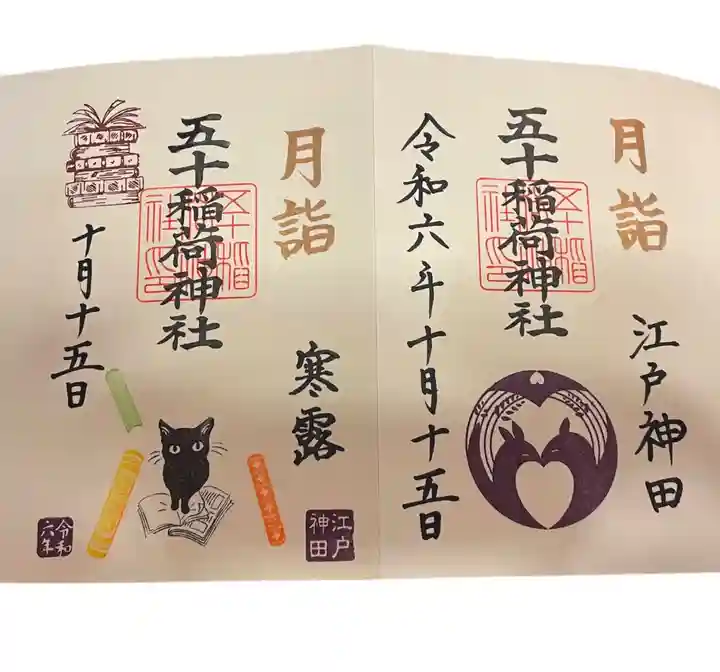 江戸神田
月詣
五十稲荷神社
令和六年十月十五日
寒露
月詣
五十稲荷神社
十月十五日
江戸神田
令和六年